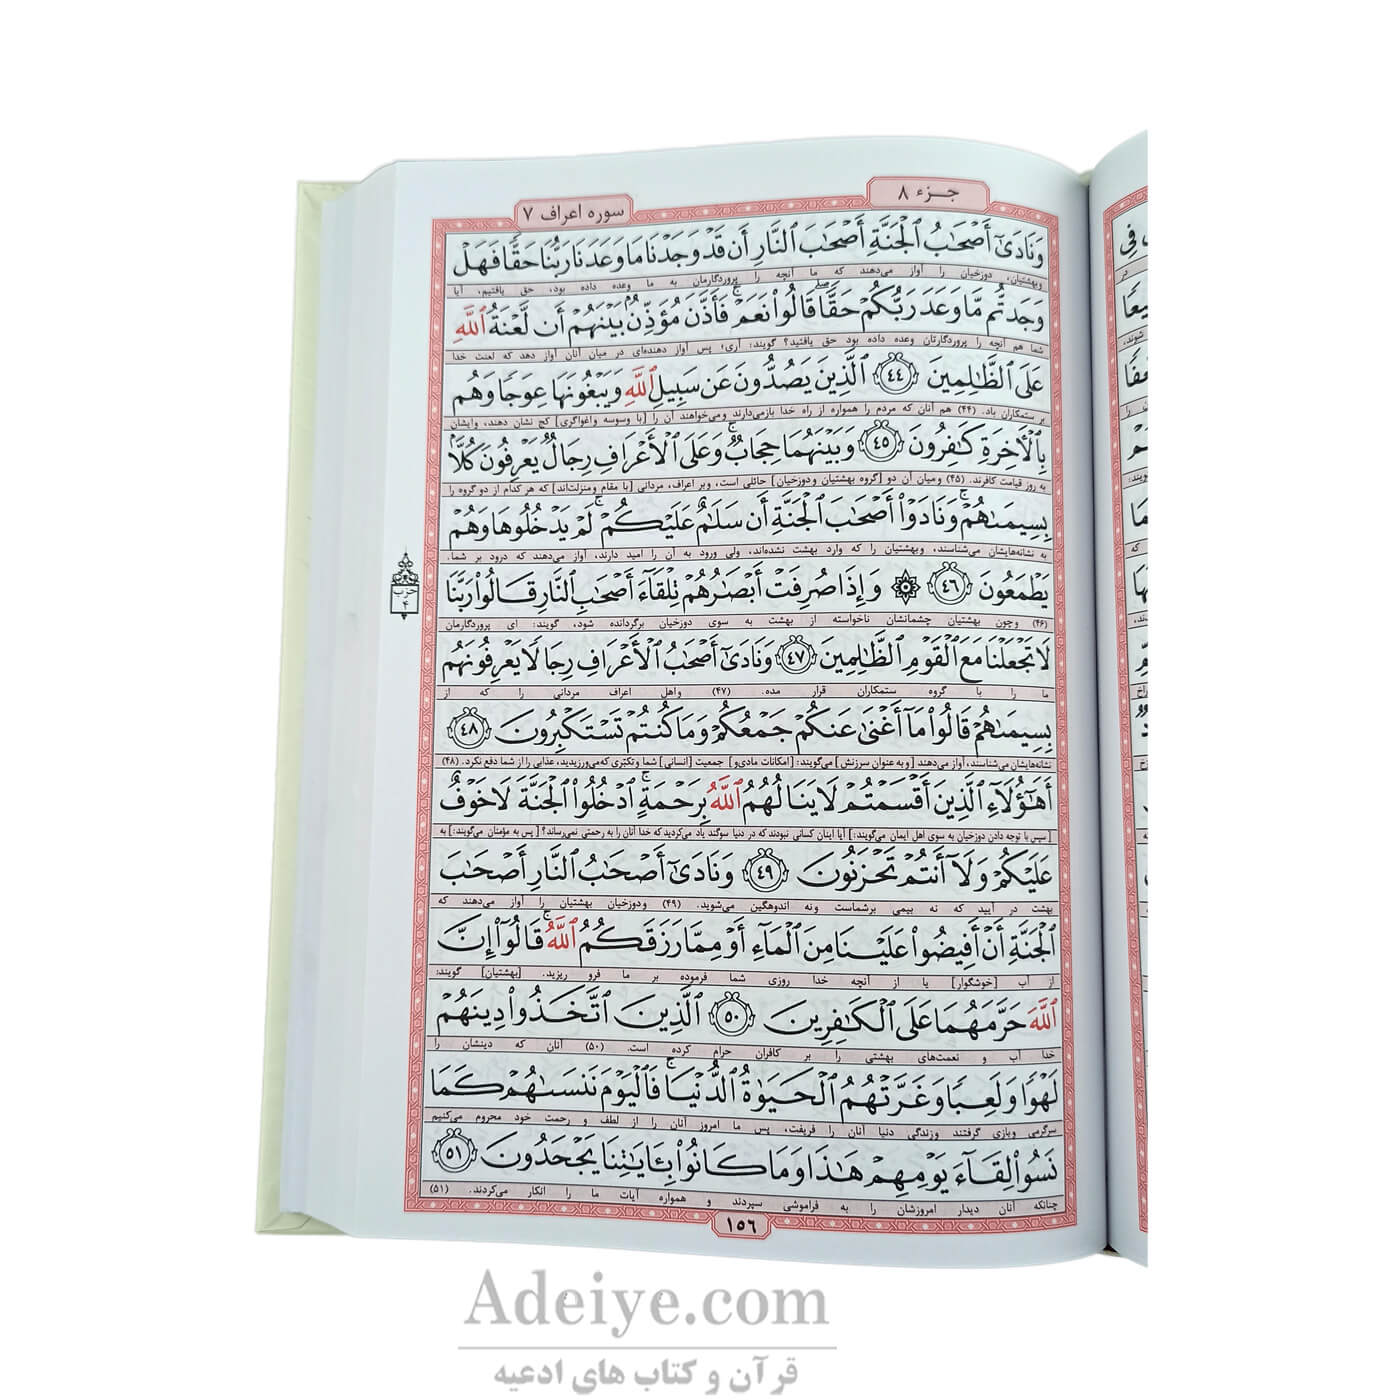 جزء ۸
سوره اعراف ۷
وَنَادَىٰٓ أَصْحَٰبُ ٱلْجَنَّةِ أَصْحَٰبَ ٱلنَّارِ أَن قَدْ وَجَدْنَا مَا وَعَدَنَا رَبُّنَا حَقًّا فَهَلْ
وبهشتیان، دوزخیان را آواز می‌دهند که ما آنچه را پروردگارمان به ما وعده داده بود، حق یافتیم، آیا
وَجَدتُّم مَّا وَعَدَ رَبُّكُمْ حَقًّا ۖ قَالُوا۟ نَعَمْ ۚ فَأَذَّنَ مُؤَذِّنٌۢ بَيْنَهُمْ أَن لَّعْنَةُ ٱللَّهِ
شما هم آنچه را پروردگارتان وعده داده بود حق یافتید؟ گویند: آری؛ پس آواز دهنده‌ای در میان آنان آواز دهد که لعنت خدا
عَلَى ٱلظَّٰلِمِينَ ﴿٤٤﴾ ٱلَّذِينَ يَصُدُّونَ عَن سَبِيلِ ٱللَّهِ وَيَبْغُونَهَا عِوَجًا وَهُم
بر ستمکاران باد. (۴۴) هم آنان که مردم را همواره از راه خدا بازمی‌دارند ومی‌خواهند آن را [با وسوسه واغواگری] کج نشان دهند، وایشان
بِٱلْءَاخِرَةِ كَٰفِرُونَ ﴿٤٥﴾ وَبَيْنَهُمَا حِجَابٌ ۚ وَعَلَى ٱلْأَعْرَافِ رِجَالٌ يَعْرِفُونَ كُلًّۢا
به روز قیامت کافرند. (۴۵) ومیان آن دو [گروه بهشتیان ودوزخیان] حائلی است، وبر اعراف، مردانی [با مقام ومنزلت‌اند] که هر کدام از دو گروه را
بِسِيمَىٰهُمْ ۚ وَنَادَوْا۟ أَصْحَٰبَ ٱلْجَنَّةِ أَن سَلَٰمٌ عَلَيْكُمْ ۚ لَمْ يَدْخُلُوهَا وَهُمْ
به نشانه‌هایشان می‌شناسند، وبهشتیان را که وارد بهشت نشده‌اند، ولی ورود به آن را امید دارند، آواز می‌دهند که درود بر شما.
يَطْمَعُونَ ﴿٤٦﴾ ۞ وَإِذَا صُرِفَتْ أَبْصَٰرُهُمْ تِلْقَآءَ أَصْحَٰبِ ٱلنَّارِ قَالُوا۟ رَبَّنَا
(۴۶) وچون بهشتیان چشمانشان ناخواسته از بهشت به سوی دوزخیان برگردانده شود، گویند: ای پروردگارمان
لَا تَجْعَلْنَا مَعَ ٱلْقَوْمِ ٱلظَّٰلِمِينَ ﴿٤٧﴾ وَنَادَىٰٓ أَصْحَٰبُ ٱلْأَعْرَافِ رِجَالًا يَعْرِفُونَهُم
ما را با گروه ستمکاران قرار مده. (۴۷) واهل اعراف مردانی را که از
بِسِيمَىٰهُمْ قَالُوا۟ مَآ أَغْنَىٰ عَنكُمْ جَمْعُكُمْ وَمَا كُنتُمْ تَسْتَكْبِرُونَ ﴿٤٨﴾
نشانه‌هایشان می‌شناسند، آواز می‌دهند [و به عنوان سرزنش] می‌گویند: [امکانات مادی‌و] جمعیت [انسانی] شما و تکبّری که می‌ورزیدید، عذابی را از شما دفع نکرد. (۴۸)
أَهَٰٓؤُلَآءِ ٱلَّذِينَ أَقْسَمْتُمْ لَا يَنَالُهُمُ ٱللَّهُ بِرَحْمَةٍ ۚ ٱدْخُلُوا۟ ٱلْجَنَّةَ لَا خَوْفٌ
[سپس با توجه دادن دوزخیان به سوی اهل ایمان می‌گویند:] آیا اینان کسانی نبودند که در دنیا سوگند یاد می‌کردید که خدا آنان را به رحمتی نمی‌رساند؟ [پس به مؤمنان می‌گویند:] به
عَلَيْكُمْ وَلَآ أَنتُمْ تَحْزَنُونَ ﴿٤٩﴾ وَنَادَىٰٓ أَصْحَٰبُ ٱلنَّارِ أَصْحَٰبَ
بهشت در آیید که نه بیمی برشماست ونه اندوهگین می‌شوید. (۴۹) ودوزخیان بهشتیان را آواز می‌دهند که
ٱلْجَنَّةِ أَنْ أَفِيضُوا۟ عَلَيْنَا مِنَ ٱلْمَآءِ أَوْ مِمَّا رَزَقَكُمُ ٱللَّهُ ۚ قَالُوٓا۟ إِنَّ
از آب [خوشگوار] یا از آنچه خدا روزی شما فرموده بر ما فرو ریزید. [بهشتیان] گویند:
ٱللَّهَ حَرَّمَهُمَا عَلَى ٱلْكَٰفِرِينَ ﴿٥٠﴾ ٱلَّذِينَ ٱتَّخَذُوا۟ دِينَهُمْ
خدا آب و نعمت‌های بهشتی را بر کافران حرام کرده است. (۵۰) آنان که دینشان را
لَهْوًا وَلَعِبًا وَغَرَّتْهُمُ ٱلْحَيَوٰةُ ٱلدُّنْيَا ۚ فَٱلْيَوْمَ نَنسَىٰهُمْ كَمَا
سرگرمی وبازی گرفتند وزندگی دنیا آنان را فریفت، پس ما امروز آنان را از لطف و رحمت خود محروم می‌کنیم
نَسُوا۟ لِقَآءَ يَوْمِهِمْ هَٰذَا وَمَا كَانُوا۟ بِـَٔايَٰتِنَا يَجْحَدُونَ ﴿٥١﴾
چنانکه آنان دیدار امروزشان را به فراموشی سپردند و همواره آیات ما را انکار می‌کردند. (۵۱)
۱۵۶
حزب
۴
Adeiye.com
قرآن و کتاب های ادعیه